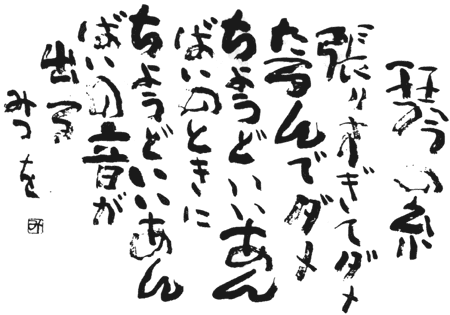 琴の糸
張りすぎてダメ
たるんでダメ
ちょうどいいあん
ばいのときに
ちょうどいいあん
ばいの音が
出る
みつを